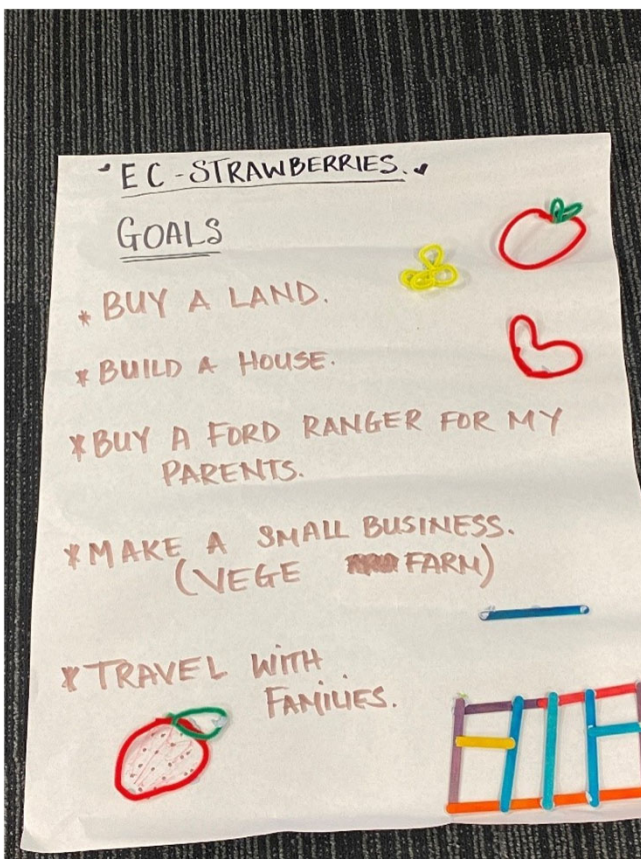 EC-STRAWBERRIES.
GOALS
* BUY A LAND.
* BUILD A HOUSE.
* BUY A FORD RANGER FOR MY
PARENTS.
* MAKE A SMALL BUSINESS.
(VEGE FARM)
* TRAVEL WITH
FAMILIES.